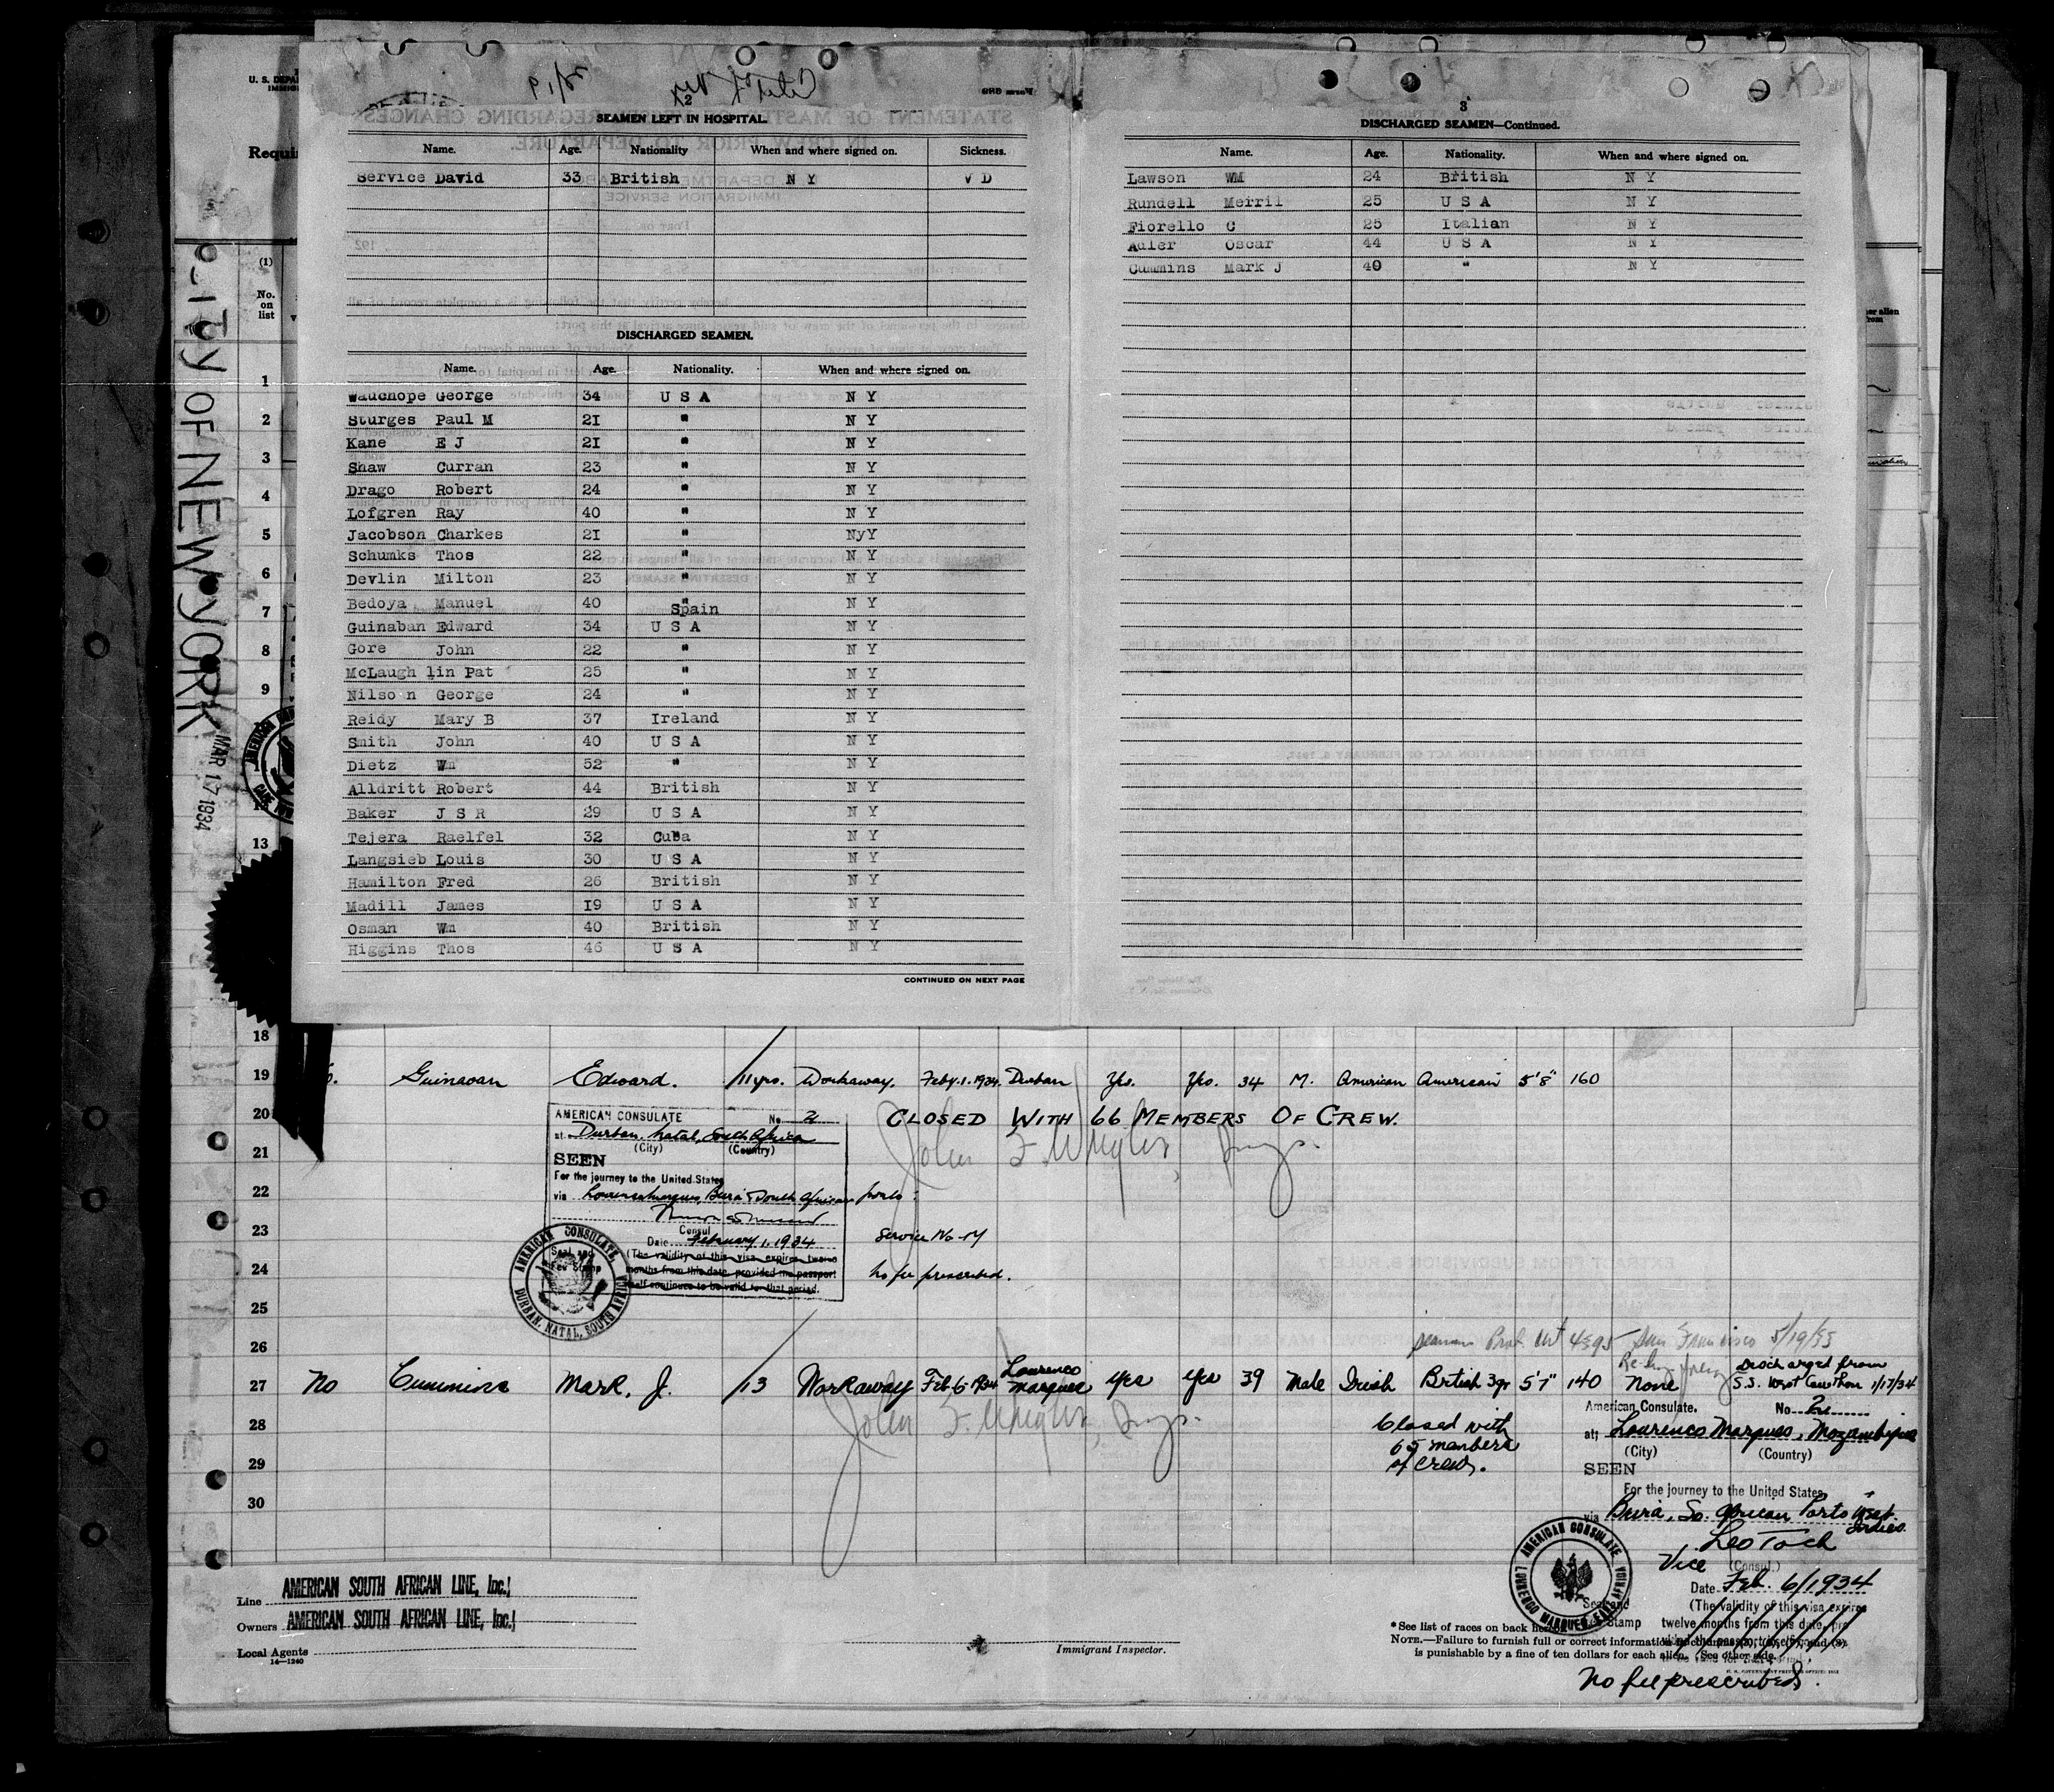 U. S. DEPA
IMMIG
Requi
CITY OF NEW YORK
MAR 17 1934
2
SEAMEN LEFT IN HOSPITAL.
Name. Age. Nationality When and where signed on. Sickness.
Service David 33 British N Y V D
DISCHARGED SEAMEN.
Name. Age. Nationality. When and where signed on.
Wauchope George 34 U S A N Y
Sturges Paul M 21 " N Y
Kane E J 21 " N Y
Shaw Curran 23 " N Y
Drago Robert 24 " N Y
Lofgren Ray 40 " N Y
Jacobson Charkes 21 " NyY
Schumks Thos 22 " N Y
Devlin Milton 23 " N Y
Bedoya Manuel 40 " Spain N Y
Guinaban Edward 34 U S A N Y
Gore John 22 " N Y
McLaugh lin Pat 25 " N Y
Nilso n George 24 " N Y
Reidy Mary B 37 Ireland N Y
Smith John 40 U S A N Y
Dietz Wm 52 " N Y
Alldritt Robert 44 British N Y
Baker J S R 29 U S A N Y
Tejera Raelfel 32 Cuba N Y
Langsieb Louis 30 U S A N Y
Hamilton Fred 26 British N Y
Madill James 19 U S A N Y
Osman Wm 40 British N Y
Higgins Thos 46 U S A N Y
CONTINUED ON NEXT PAGE
3
DISCHARGED SEAMEN—Continued.
Name. Age. Nationality. When and where signed on.
Lawson WM 24 British N Y
Rundell Merril 25 U S A N Y
Fiorello C 25 Italian N Y
Adler Oscar 44 U S A N Y
Cummins Mark J 40 " N Y
(1)
No.
on
list
1
2
3
4
5
6
7
8
9
13
18
19 Guinavan Edward. 11 yrs. Workaway. Feby. 1. 1934. Durban Yes. Yes. 34 M. American American 5'8" 160
20 CLOSED WITH 66 MEMBERS OF CREW.
AMERICAN CONSULATE No. 21
at Durban. Natal, South Africa
(City) (Country)
21
SEEN
For the journey to the United States
22
via Lourencomarques, Beira & South African ports.
Consul
23
Date February 1, 1934
Service No.
(The validity of this visa expires twelve
months from this date, provided the passport
itself continues to be valid for that period.
Seal and
Fee Stamp
AMERICAN CONSULATE
DURBAN, NATAL, SOUTH AFRICA
24 No fee prescribed.
25
26 Seaman San Francisco 5/19/33
27 No Cummins Mark. J. 13 Workaway Feb 6-1934 Lourenco Marques yes yes 39 Male Irish British 5'7" 140 None Discharged from S.S. West Cawthon 1/17/34
28
29
30
Closed with
65 members
of crew.
American Consulate. No.
at Lourenco Marques, Mozambique
(City) (Country)
SEEN
For the journey to the United States
via Beira, So. African Ports West Indies.
Leo Toch
Vice (Consul)
Date Feb. 6/1934
(The validity of this visa expires
twelve months from this date, pro
AMERICAN CONSULATE
LOURENCO MARQUES, EAST AFRICA
Line AMERICAN SOUTH AFRICAN LINE, Inc.
Owners AMERICAN SOUTH AFRICAN LINE, Inc.
Local Agents
14—1240
Immigrant Inspector.
*See list of races on back
NOTE.—Failure to furnish full or correct information
is punishable by a fine of ten dollars for each alien. (See other side.)
No fee prescribed.